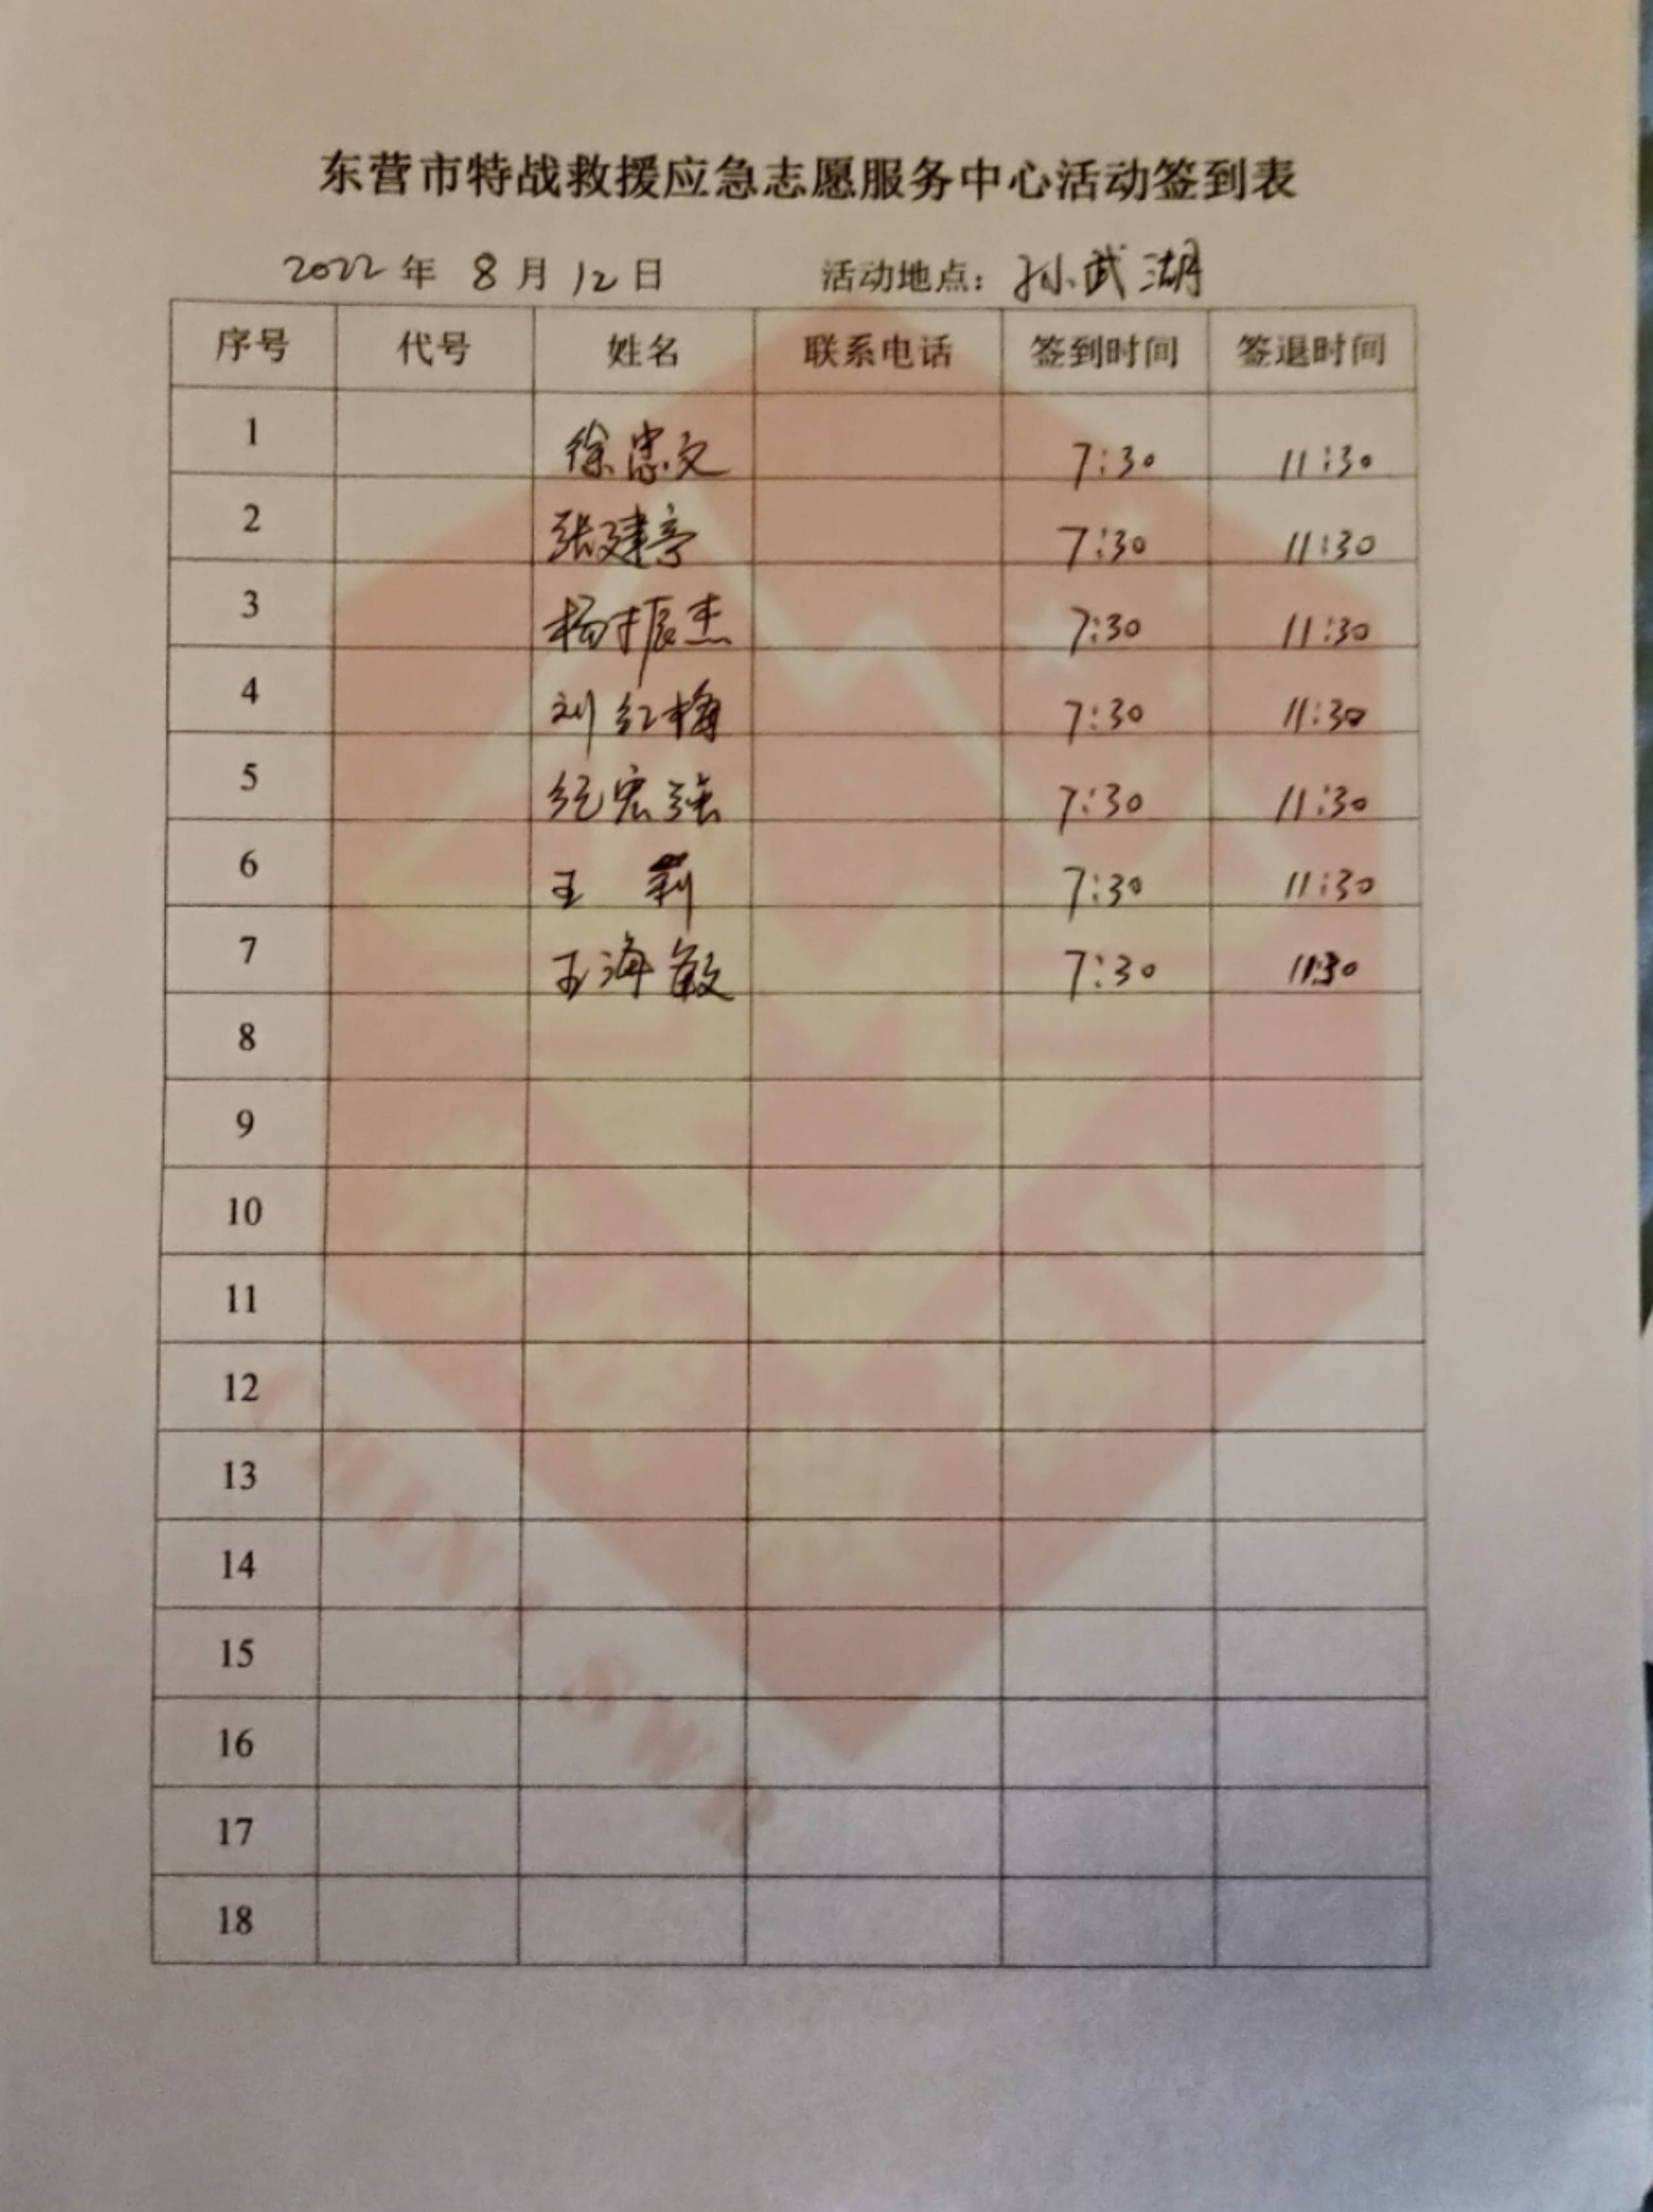 东营市特战救援应急志愿服务中心活动签到表
2022年 8月12日 活动地点：孙武湖
序号 代号 姓名 联系电话 签到时间 签退时间
1 徐忠文 7:30 11:30
2 张建亭 7:30 11:30
3 杨振杰 7:30 11:30
4 刘红梅 7:30 11:30
5 纪宏强 7:30 11:30
6 王莉 7:30 11:30
7 王海敏 7:30 11:30
8
9
10
11
12
13
14
15
16
17
18
CHINA SWR